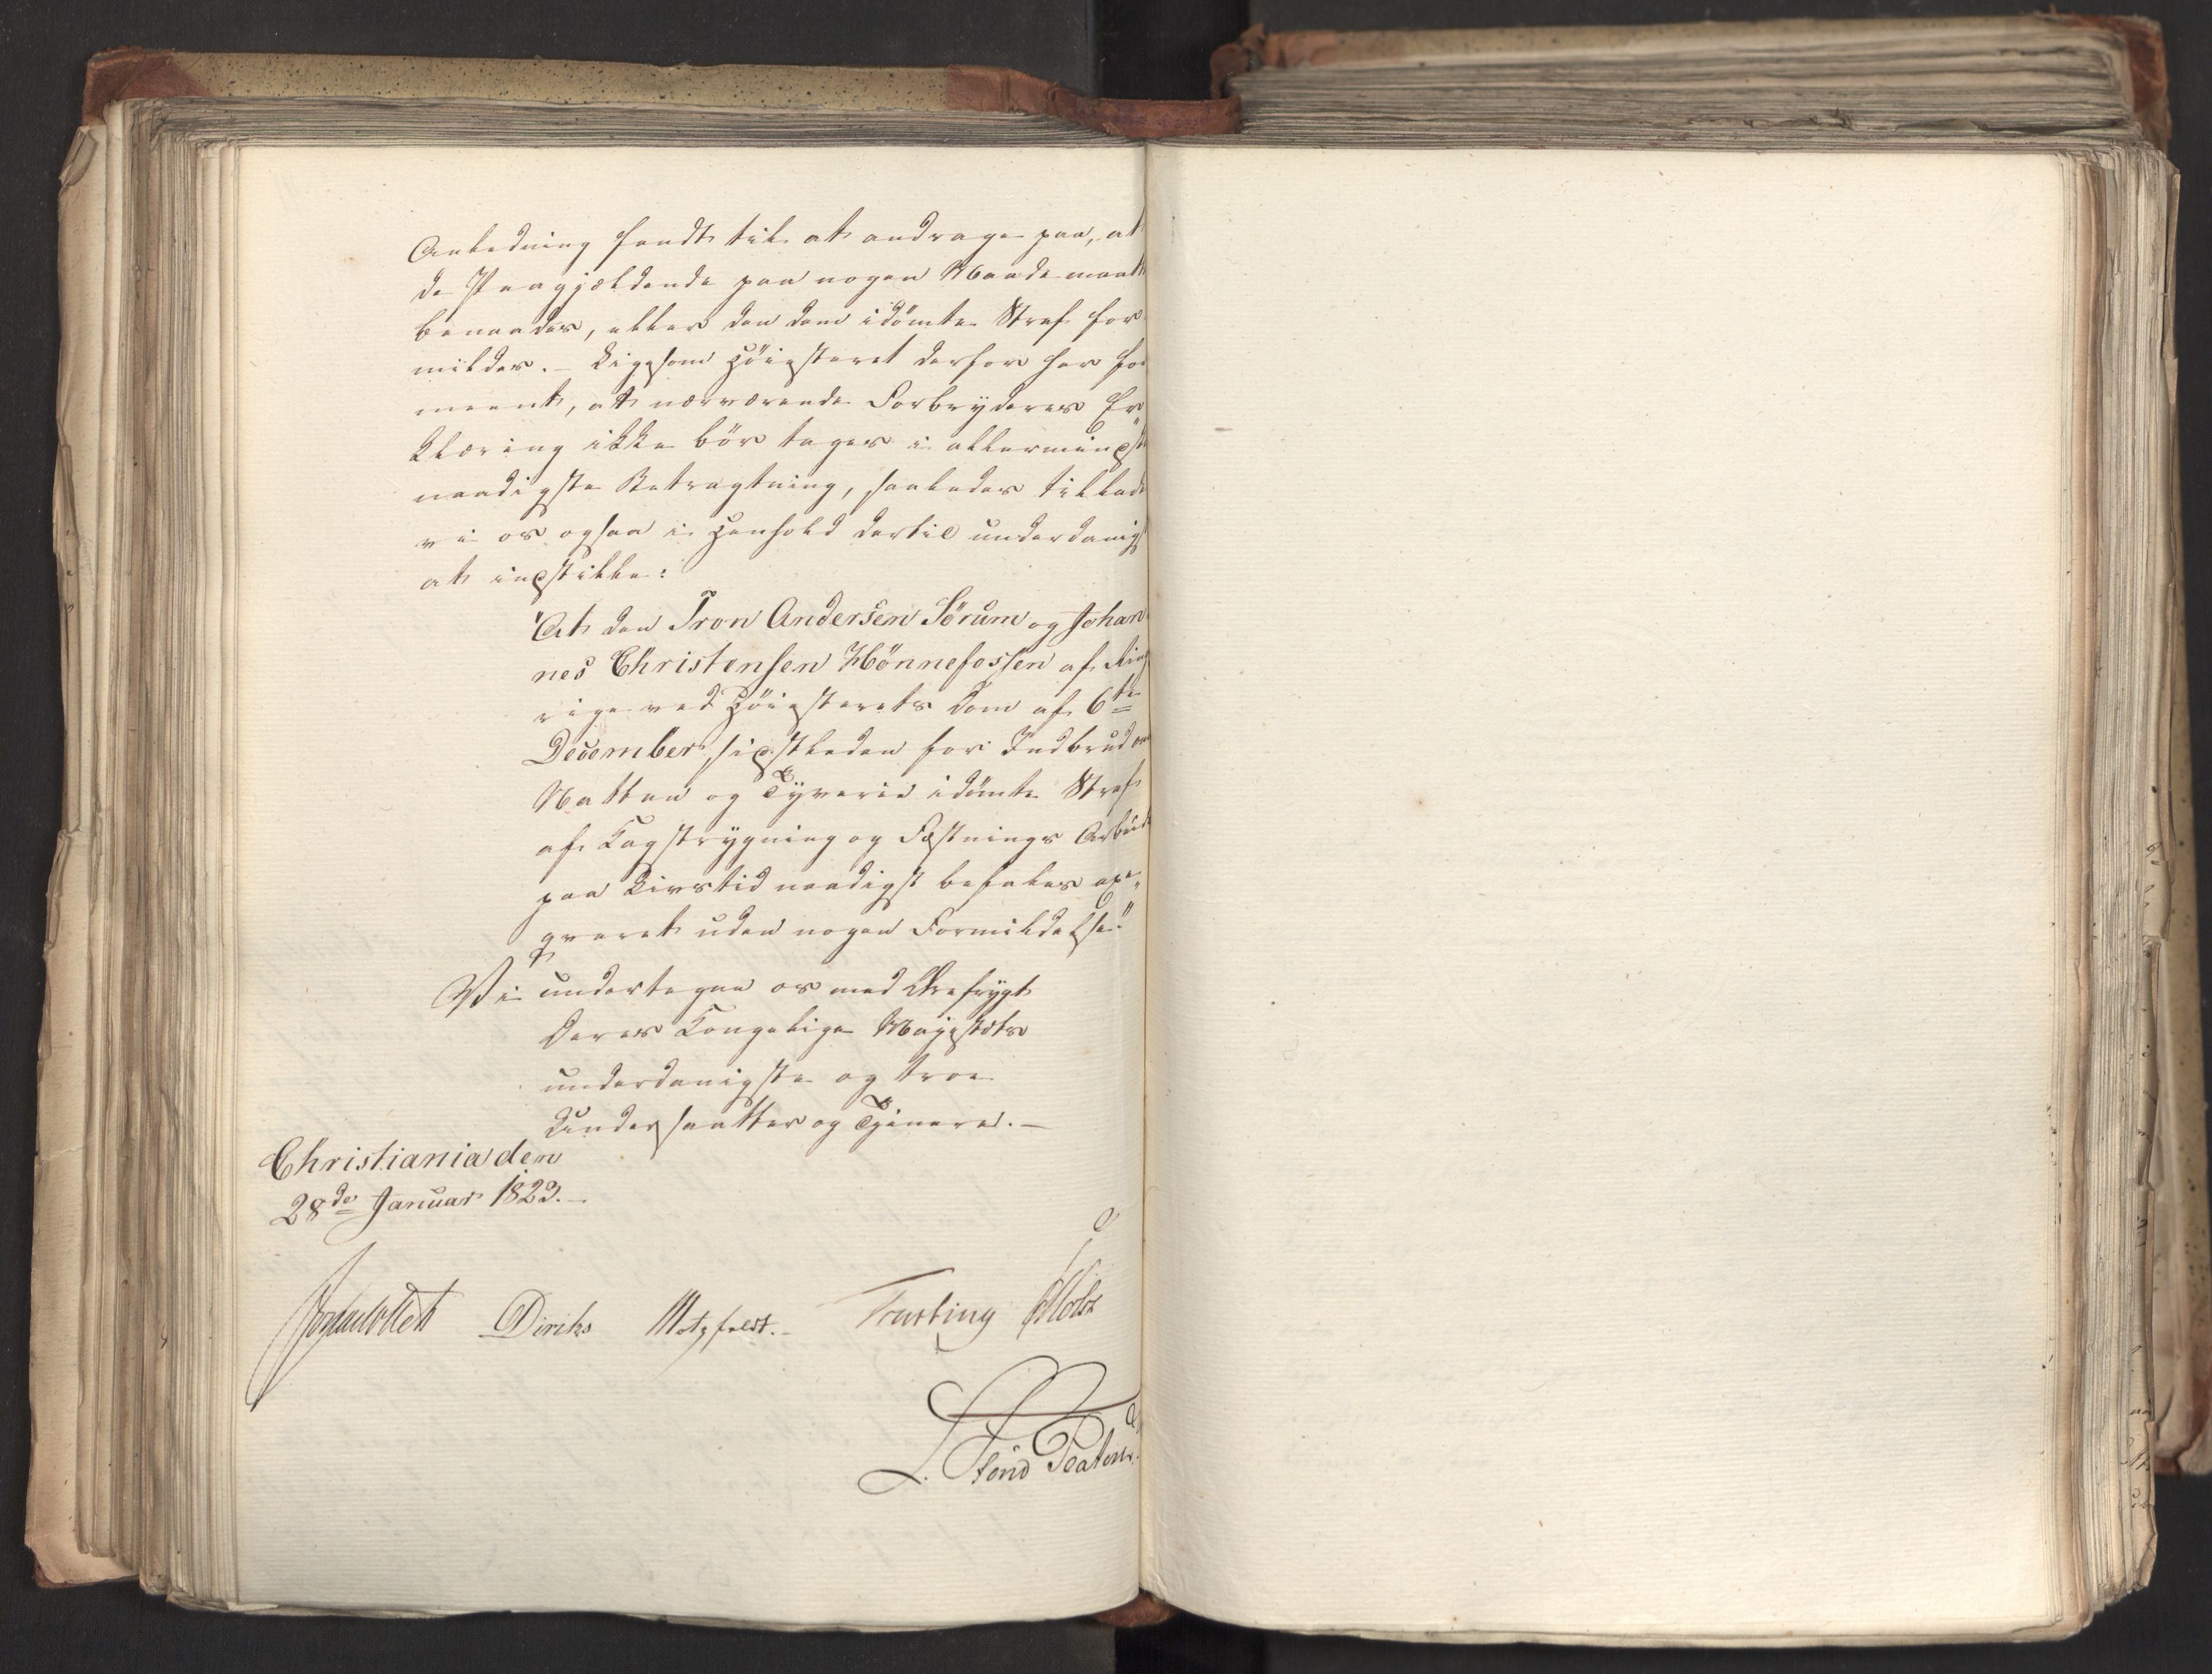 Anledning fandt til at andrage paa, at
de Paagjældende paa nogen Maade maatte
benaades, eller den dem idømte Straf for
mildes. – Ligesom Høiesteret derfor har for
meent, at nærværende Forbryderes Er
klæring ikke bör tages i allermindst
naadigste Betragtning, saaledes tillade
vi os ogsaa i Henhold dertil underdanigst
at indstille:
"At den Iron Andersen Sörum og Johan
nes Christensen Hönnefossen af Ring
rige ved Höiesterets Dom af 6te
December sidstleden for Indbrud om
Natten og Tyverie idömte Straf
af Kagstrygning og Fæstnings Arbeide
paa Livstid naadigst befales exe„
qveret uden nogen Formildelse."
Vi undertegne os med Ærefrygt
Deres Kongelige Majestæts
underdanigste og troe
Undersaatter og Tjenere. –
Christiania den
28de Januar 1823. –
Diriks Motzfeldt. – Krefting